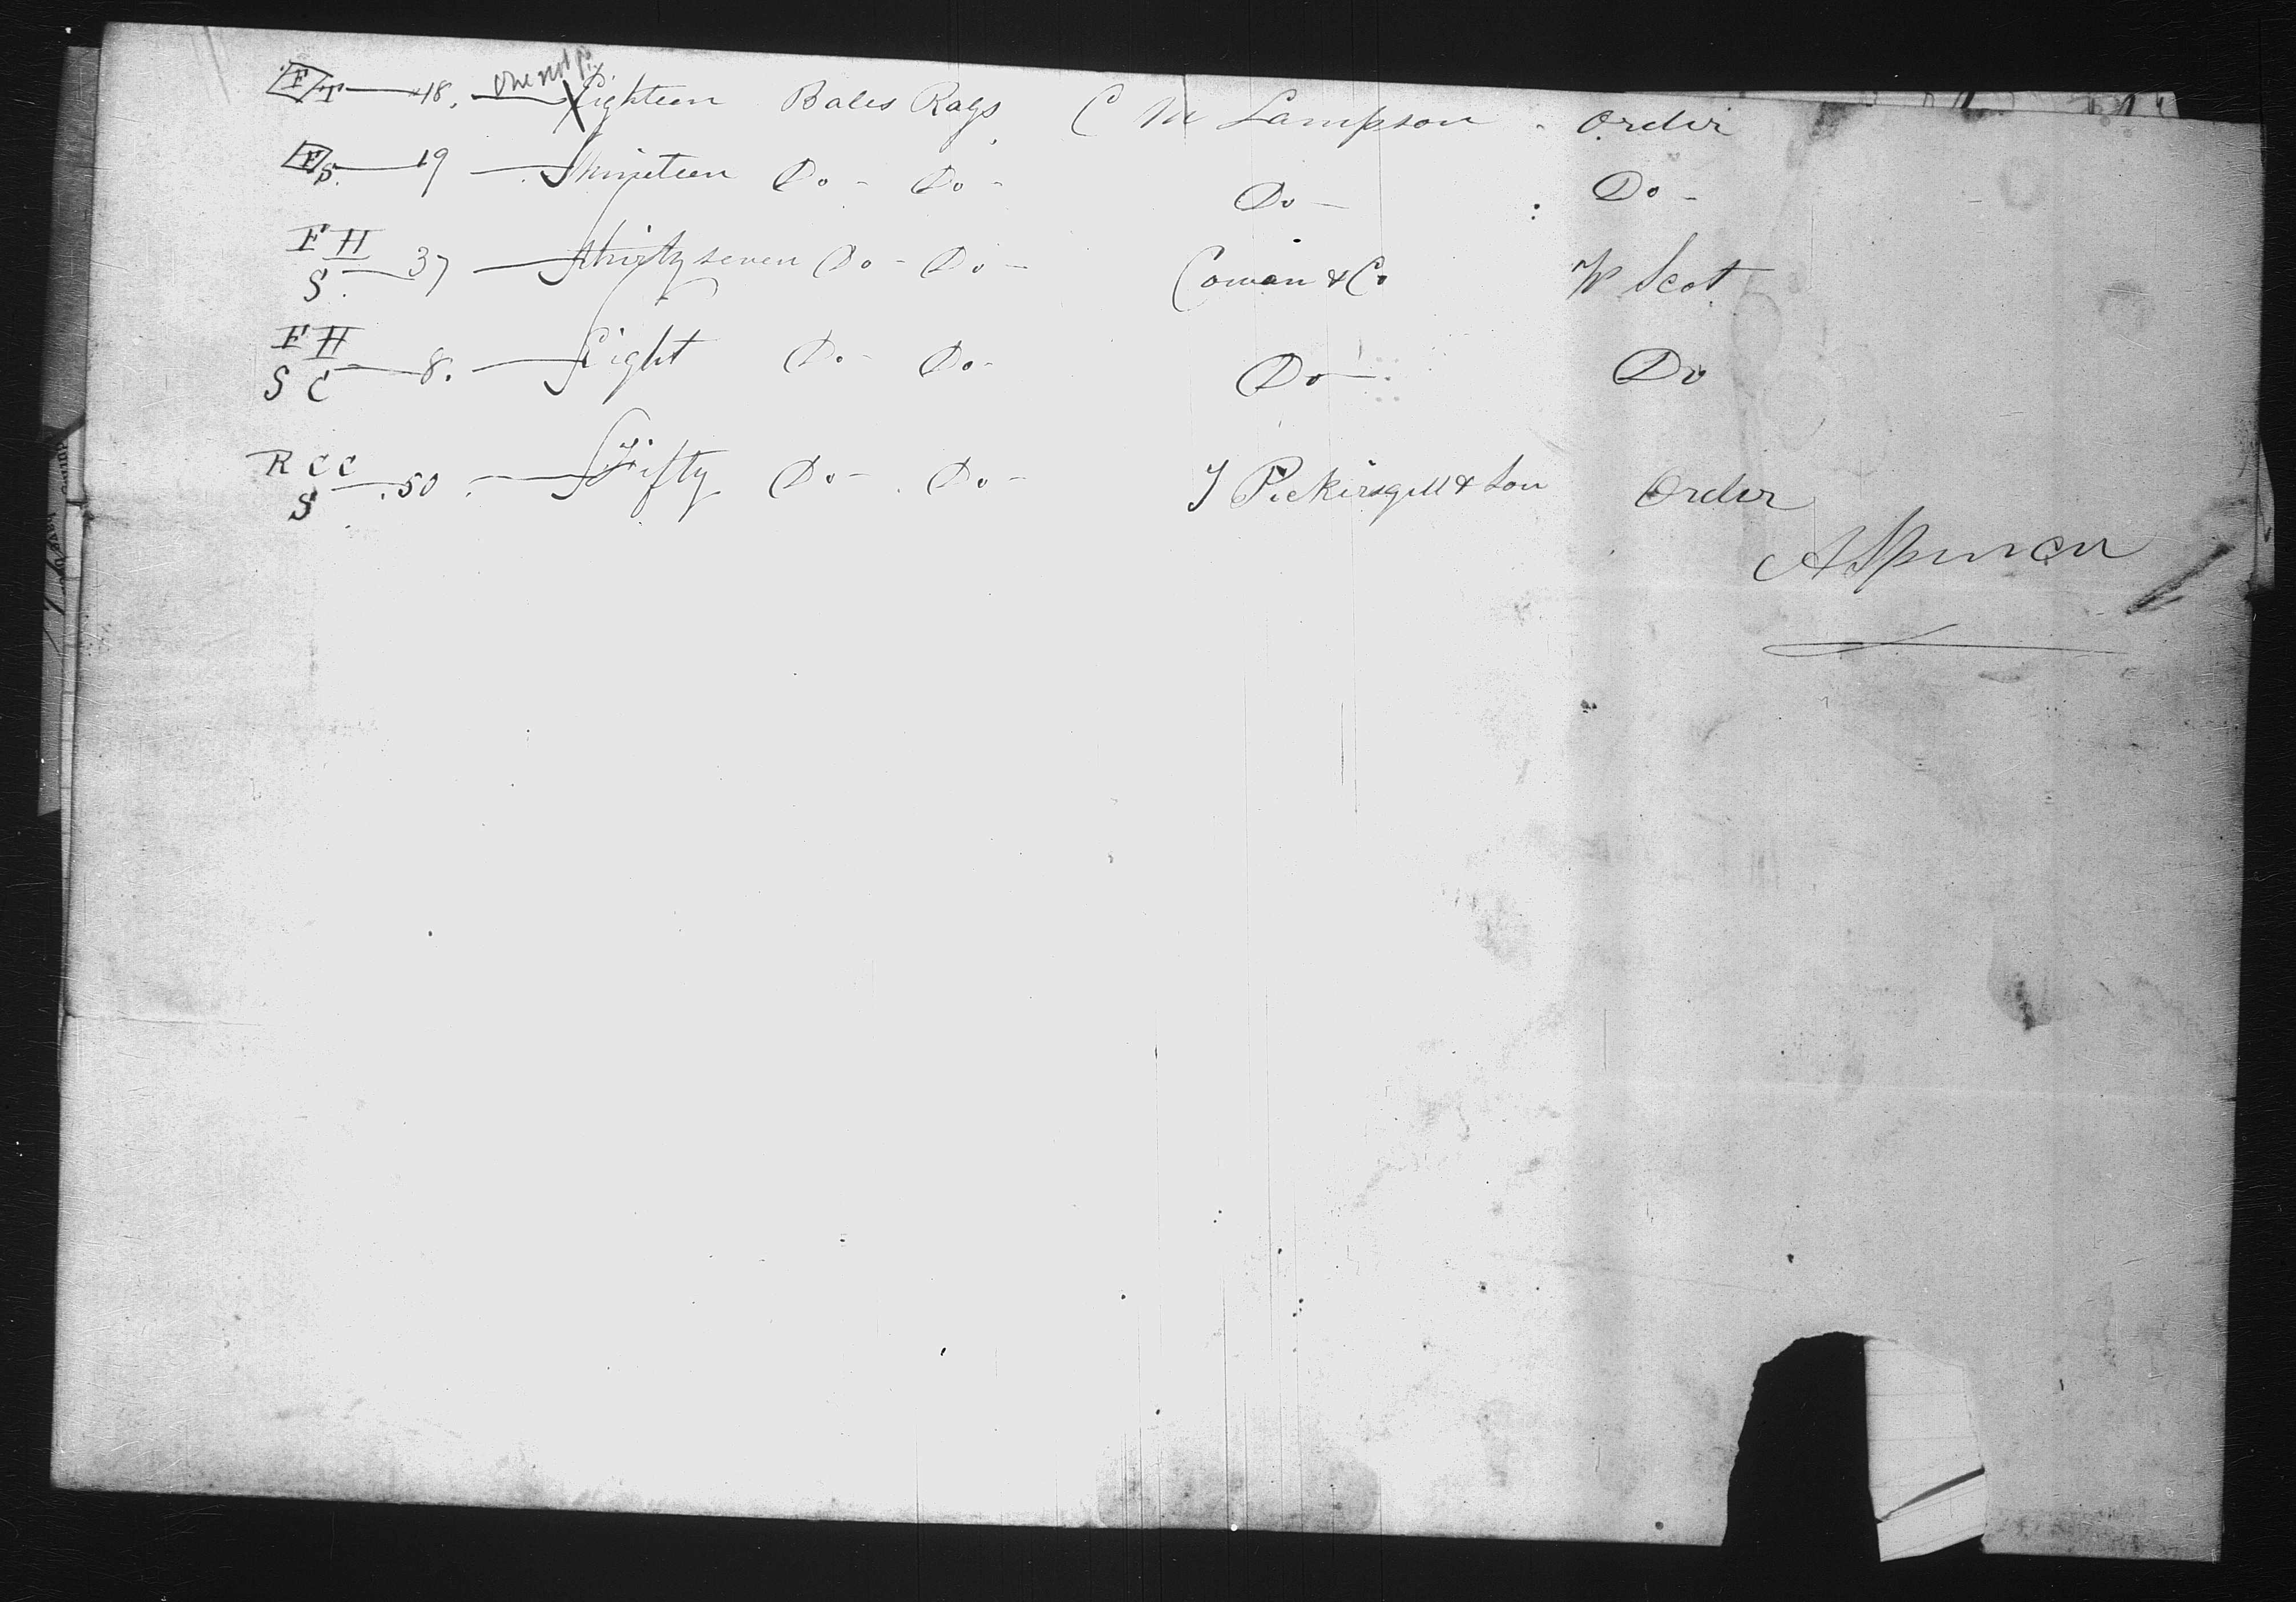 F T 18. Eighteen Bales Rags C M Lampson Order
F S. 19 Nineteen Do - Do - Do - Do -
F H
S 37 Thirty seven Do - Do - Cowan & Co W Scot
F H
S C 8. Eight Do - Do - Do - Do
R C C
S 50 Fifty Do - Do - J Pickersgill & Son Order
A Spencer